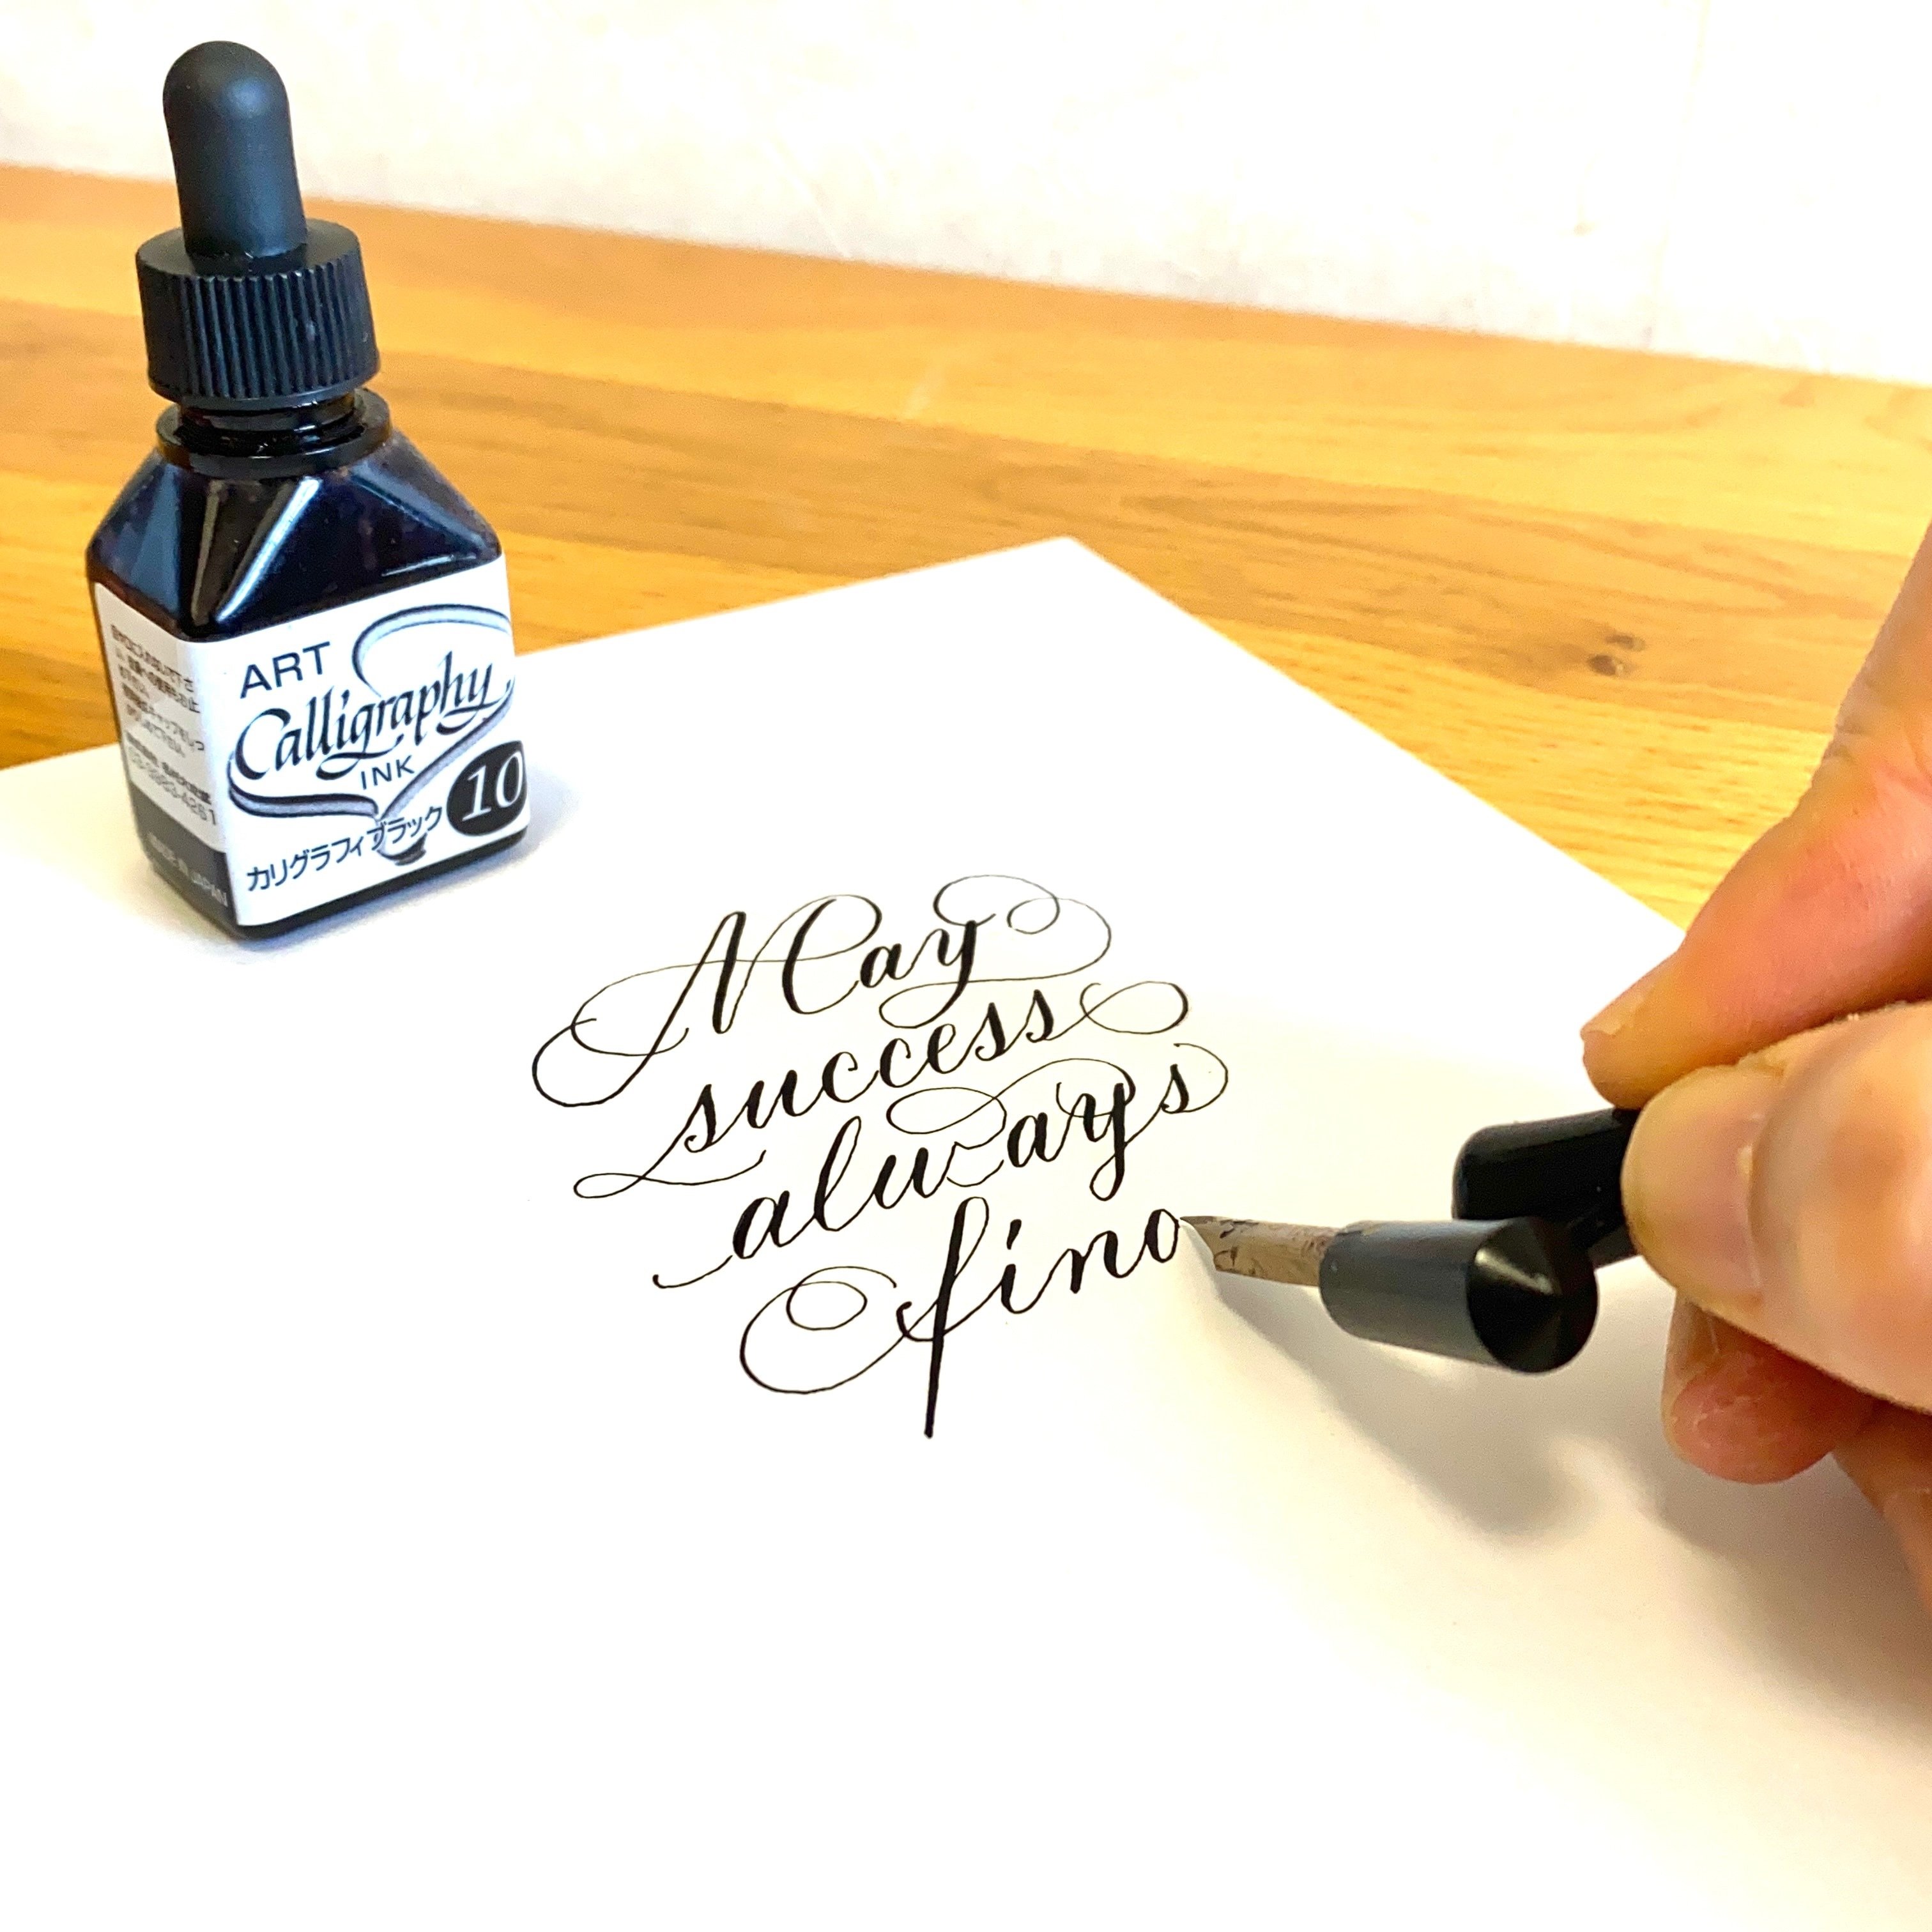 ART
Calligraphy
INK
10
カリグラフィブラック
MADE IN JAPAN
May
success
always
fino